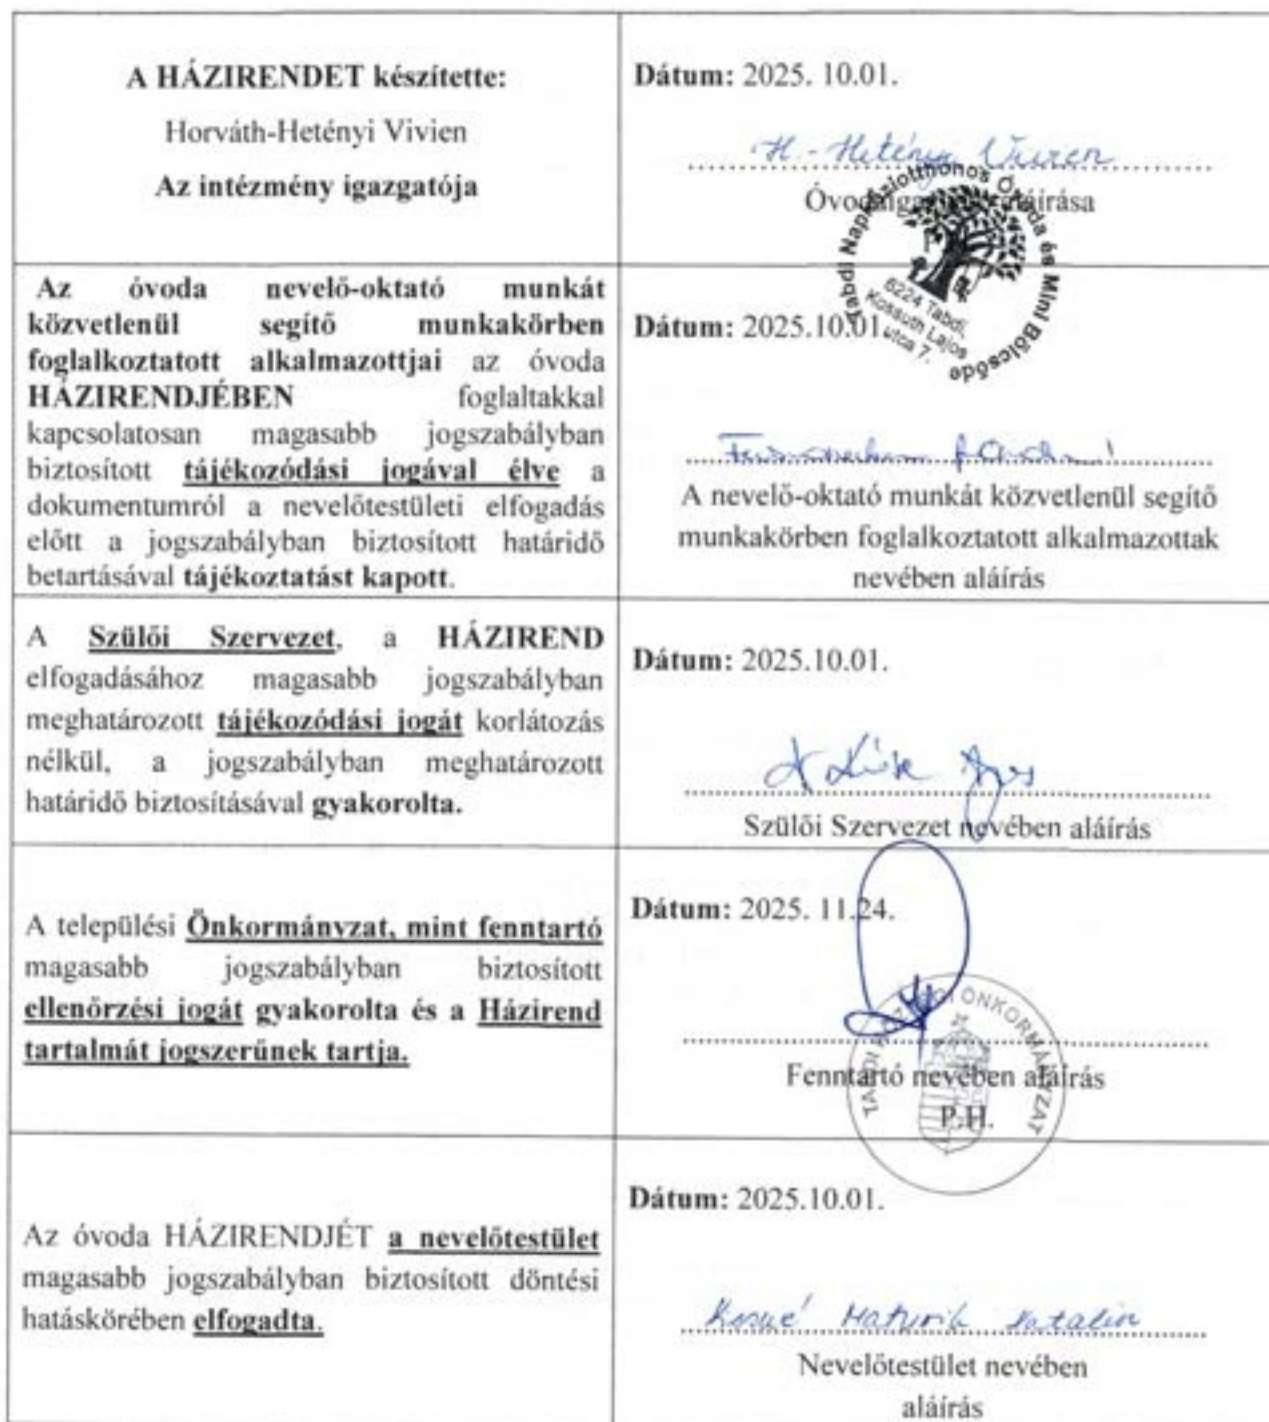 A HÁZIRENDET készítette:
Horváth-Hetényi Vivien
Az intézmény igazgatója
Dátum: 2025. 10.01.
H-Hetényi Vivien
Óvodaigazgató aláírása
Tabdi Napköziotthonos Óvoda és Mini Bölcsőde
6224 Tabdi,
Kossuth Lajos
utca 7.
Az óvoda nevelő-oktató munkát
közvetlenül segítő munkakörben
foglalkoztatott alkalmazottjai az óvoda
HÁZIRENDJÉBEN foglaltakkal
kapcsolatosan magasabb jogszabályban
biztosított tájékozódási jogával élve a
dokumentumról a nevelőtestületi elfogadás
előtt a jogszabályban biztosított határidő
betartásával tájékoztatást kapott.
Dátum: 2025.10.01.
A nevelő-oktató munkát közvetlenül segítő
munkakörben foglalkoztatott alkalmazottak
nevében aláírás
A Szülői Szervezet, a HÁZIREND
elfogadásához magasabb jogszabályban
meghatározott tájékozódási jogát korlátozás
nélkül, a jogszabályban meghatározott
határidő biztosításával gyakorolta.
Dátum: 2025.10.01.
Szülői Szervezet nevében aláírás
A települési Önkormányzat, mint fenntartó
magasabb jogszabályban biztosított
ellenőrzési jogát gyakorolta és a Házirend
tartalmát jogszerűnek tartja.
Dátum: 2025. 11.24.
Fenntartó nevében aláírás
P.H.
TABDI KÖZSÉGI ÖNKORMÁNYZAT
Az óvoda HÁZIRENDJÉT a nevelőtestület
magasabb jogszabályban biztosított döntési
hatáskörében elfogadta.
Dátum: 2025.10.01.
Katalin
Nevelőtestület nevében
aláírás